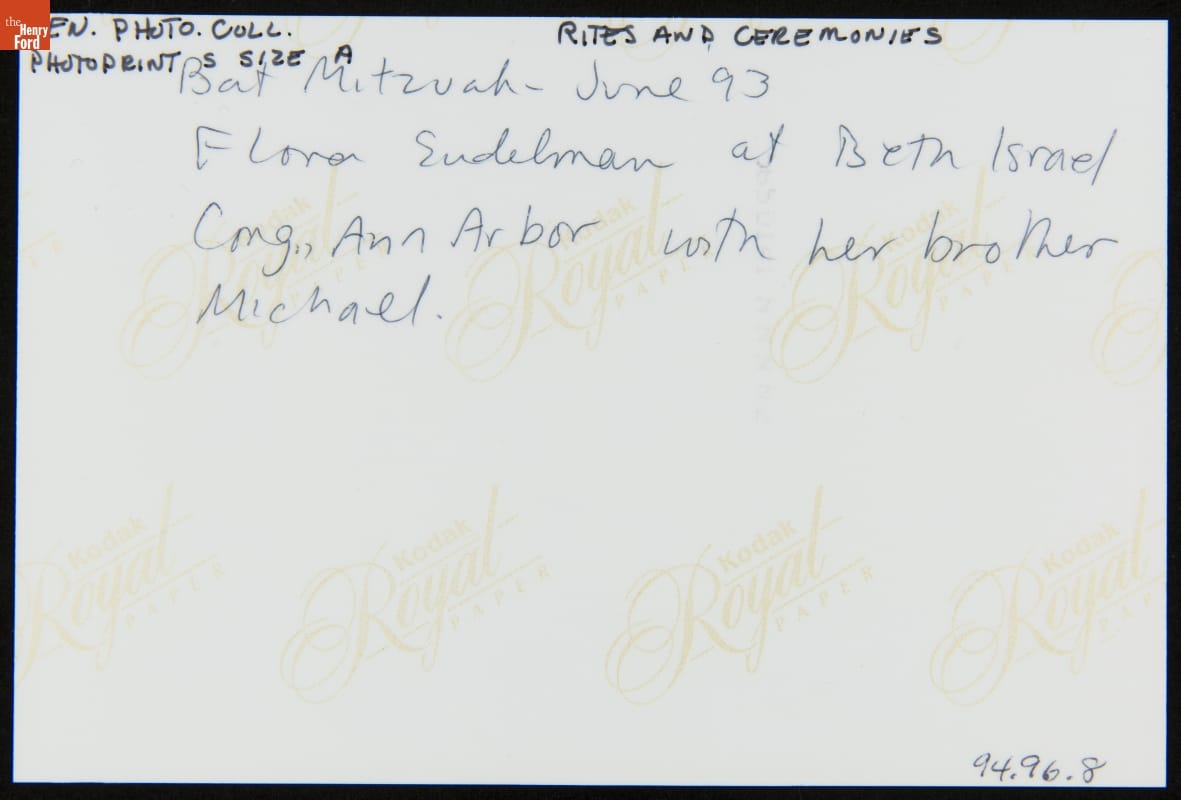 the
Henry
Ford
EN. PHOTO. COLL.
RITES AND CEREMONIES
PHOTOPRINTS SIZE A
Bat Mitzvah - June 93
Flora Eudelman at Beth Israel
Cong., Ann Arbor with her brother
Michael.
Kodak
Royal
PAPER
Kodak
Royal
PAPER
Kodak
Royal
PAPER
Kodak
Royal
PAPER
Kodak
Royal
PAPER
Kodak
Royal
PAPER
Kodak
Royal
PAPER
94.96.8